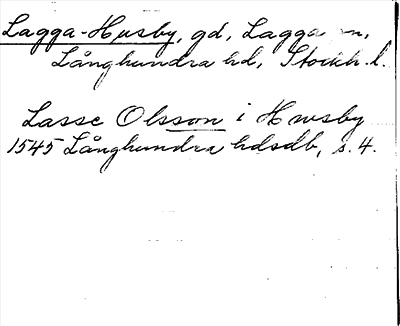 Lagga-Husby, gd, Lagga sn,
Långhundra hd, Stockh. l.
Lasse Olsson i Hwsby
1545 Långhundra hdsdb, s. 4.